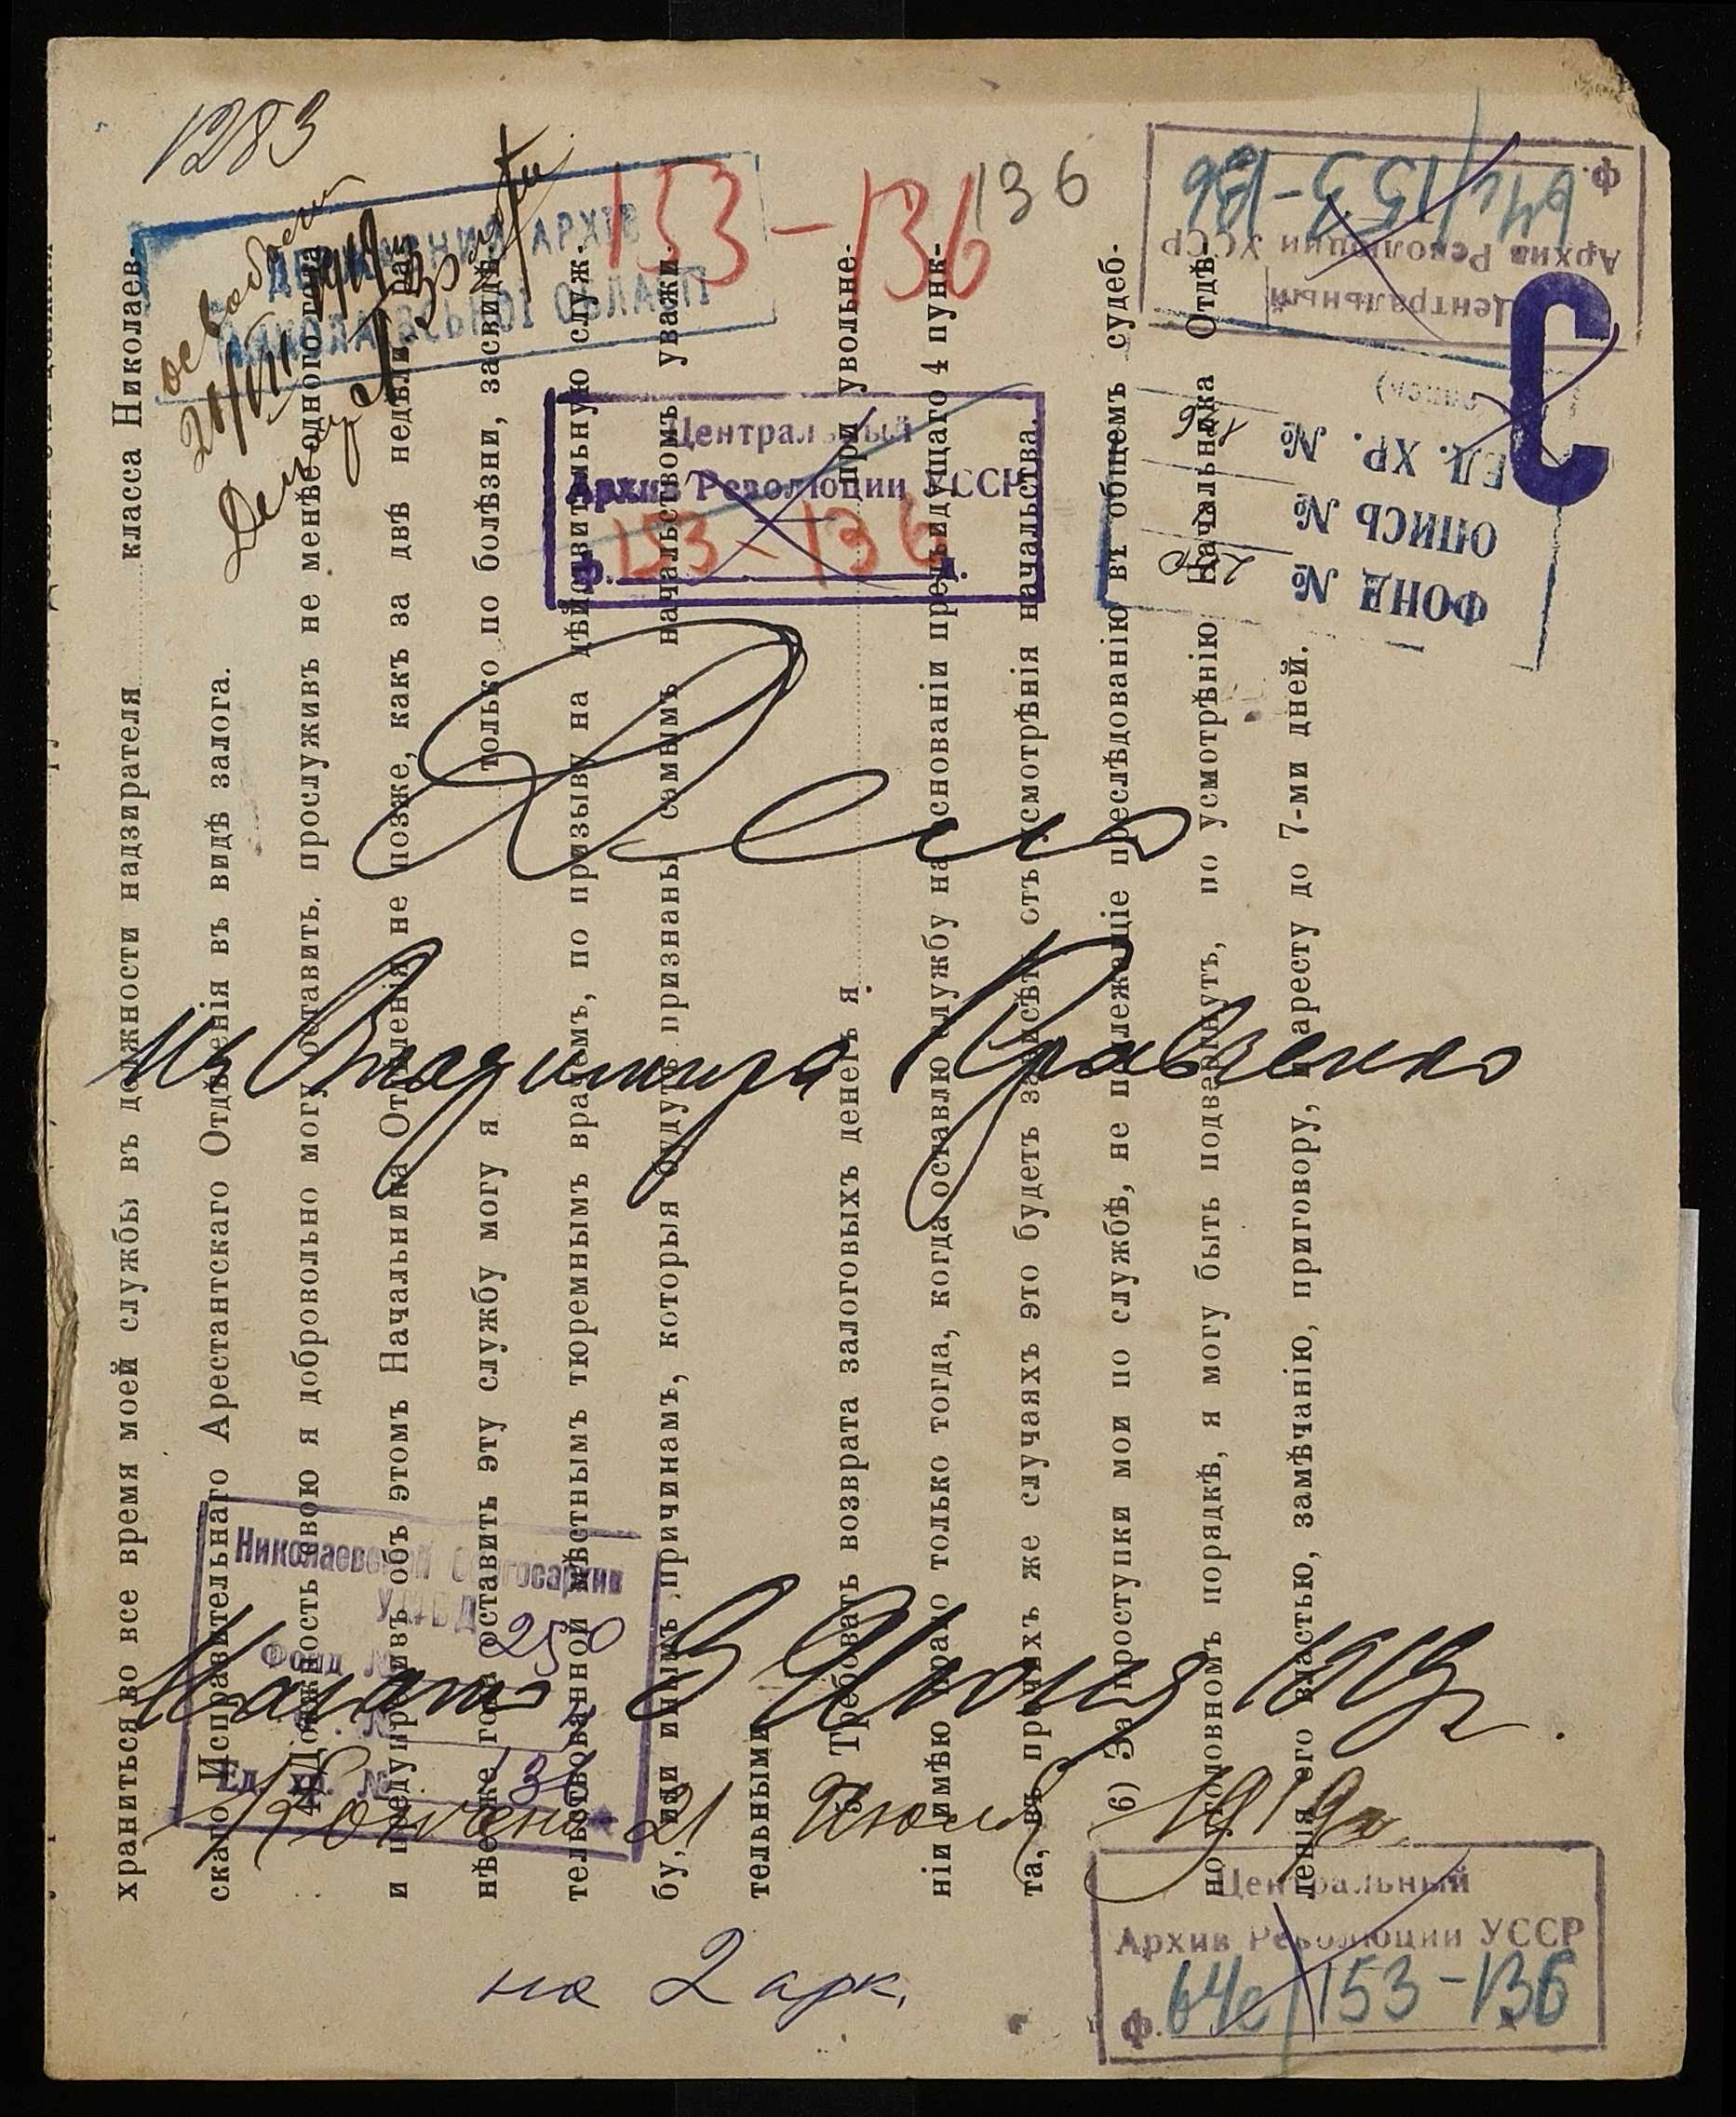 1283
136
153-136
освобожден
24/VII 1919
ДЕРЖАВНИЙ АРХІВ
МИКОЛАЇВСЬКОЇ ОБЛАСТІ
Центральный
Архив Революции УССР
Ф. 64с/153-136
С
ФОНД №
ОПИСЬ №
ЕД. ХР. № 136
Центральный
Архив Революции УССР
Ф. 153-136 д.
Дело
Владимира Кравченко
Начато 3 Июня 1919 г.
Кончено 21 Июля 1919 г.
Николаевский Облгосархив
УНКВД
Фонд № 250
Ед. хр. № 136
на 2 арк.
Центральный
Архив Революции УССР
Ф. 64с/153-136
храниться во все время моей службы въ должности надзирателя класса Николаев-
скаго Исправительнаго Арестантскаго Отдѣленія въ видѣ залога.
4) Должность свою я добровольно могу оставить, прослуживъ не менѣе одного года
и предупредивъ объ этомъ Начальника Отдѣленія не позже, какъ за двѣ недѣли. Ран-
нѣе же года оставить эту службу могу я только по болѣзни, засвидѣ-
тельствованной мѣстнымъ тюремнымъ врачемъ, по призыву на дѣйствительную служ-
бу, или инымъ причинамъ, которыя будутъ признаны самымъ начальствомъ уважи-
тельными.
5) Требовать возврата залоговыхъ денегъ я при увольне-
ніи имѣю право только тогда, когда оставлю службу на основаніи предъидущаго 4 пунк-
та, въ прочихъ же случаяхъ это будетъ зависѣть отъ усмотрѣнія начальства.
6) За проступки мои по службѣ, не подлежащіе преслѣдованію въ общемъ судеб-
но-уголовномъ порядкѣ, я могу быть подвергнутъ, по усмотрѣнію Начальника Отдѣ-
ленія его властью, замѣчанію, приговору, аресту до 7-ми дней.